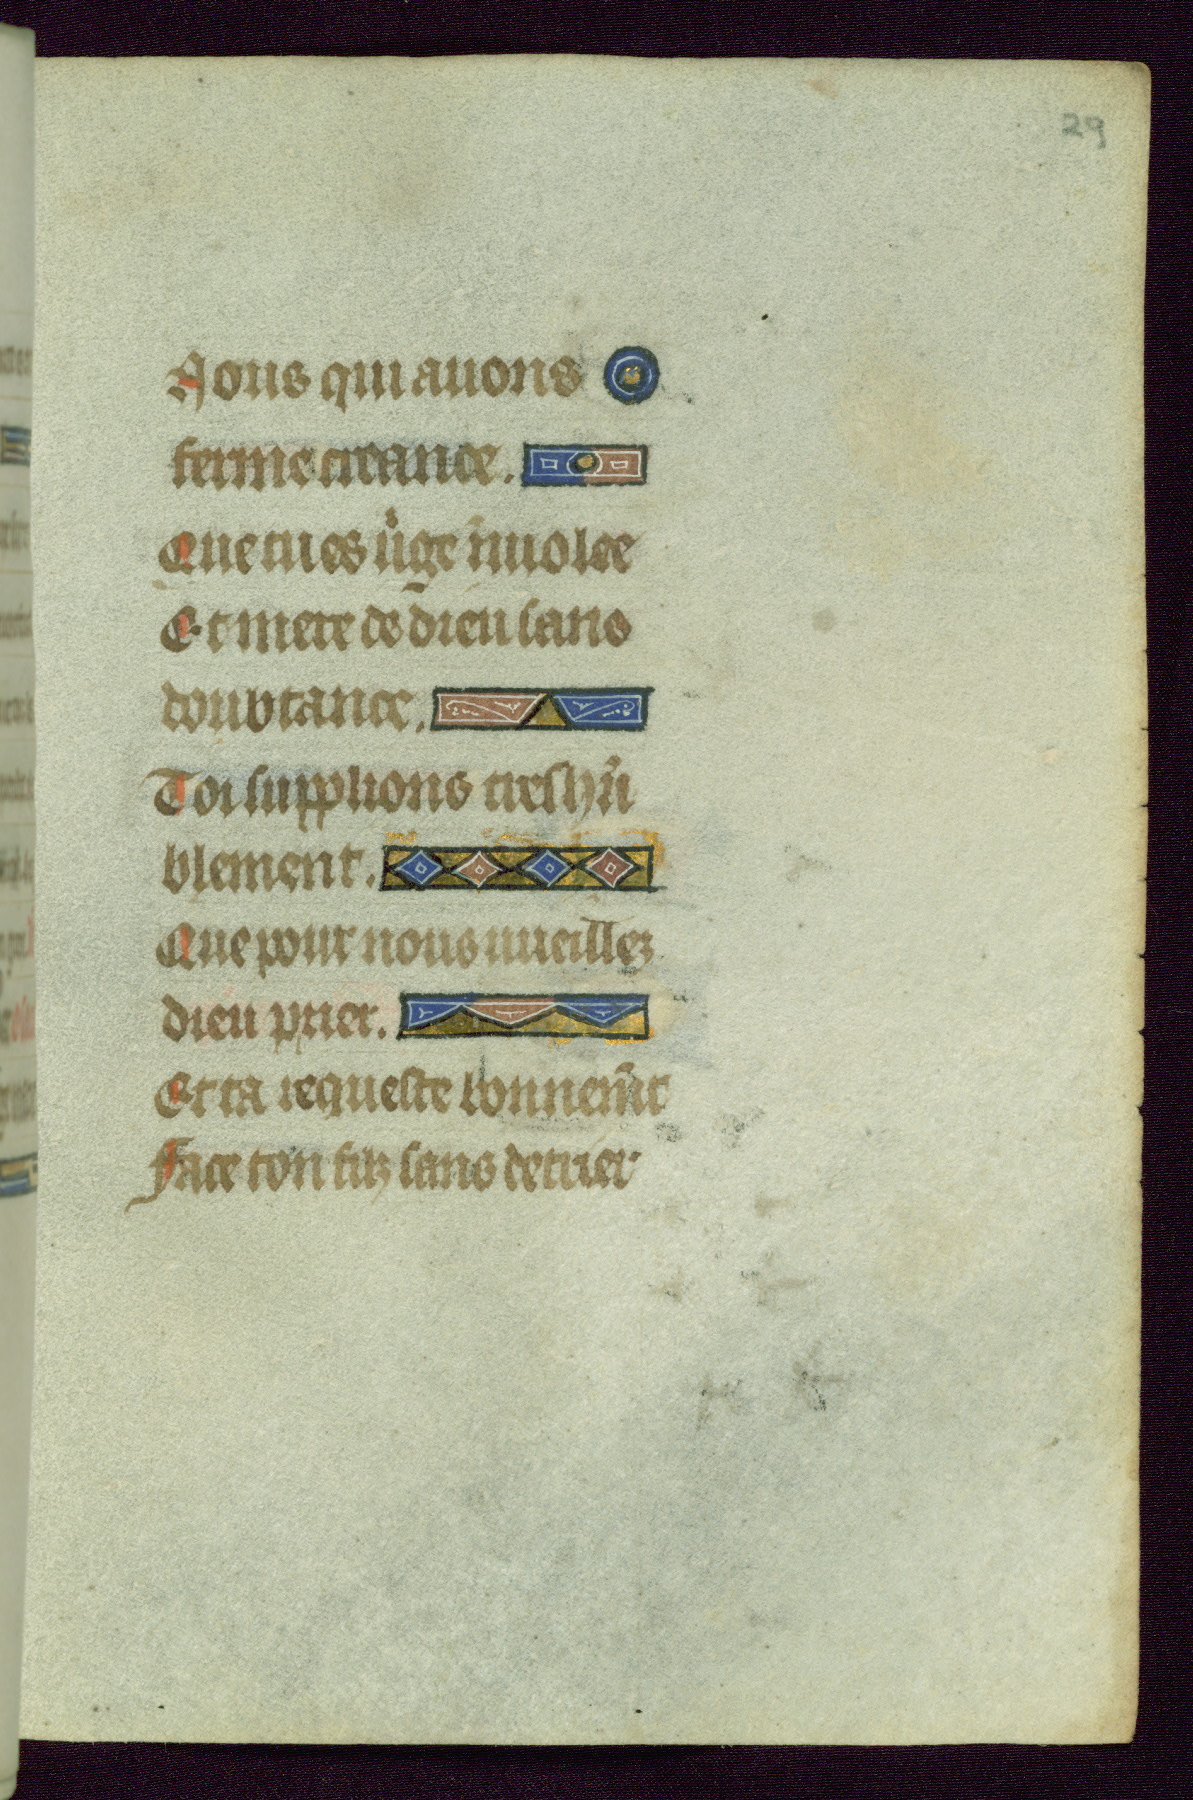 29
Nous qui auons
ferme creance.
Que tu es u̍ge inuolee
Et mere de dieu sans
doubtance.
Toi supplions tres hu̅
blement.
Que pour nous uueillez
dieu prier.
Et ta requeste bonnem̅t
Face ton filz sans detrier